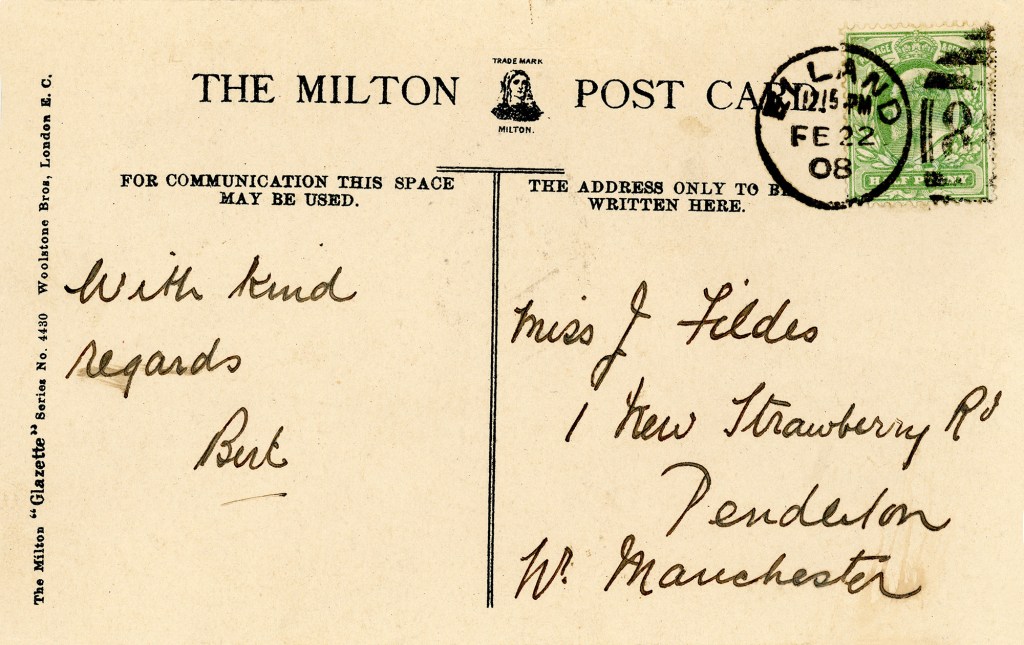 THE MILTON
TRADE MARK
MILTON.
POST CARD
ELLAND
12.15 PM
FE 22
08
HALF PENNY
FOR COMMUNICATION THIS SPACE
MAY BE USED.
THE ADDRESS ONLY TO BE
WRITTEN HERE.
With kind
regards
Bert
Miss J Fildes
1 New Strawberry Rd
Pendleton
Nr. Manchester
The Milton "Glazette" Series No. 4430 Woolstone Bros, London E. C.